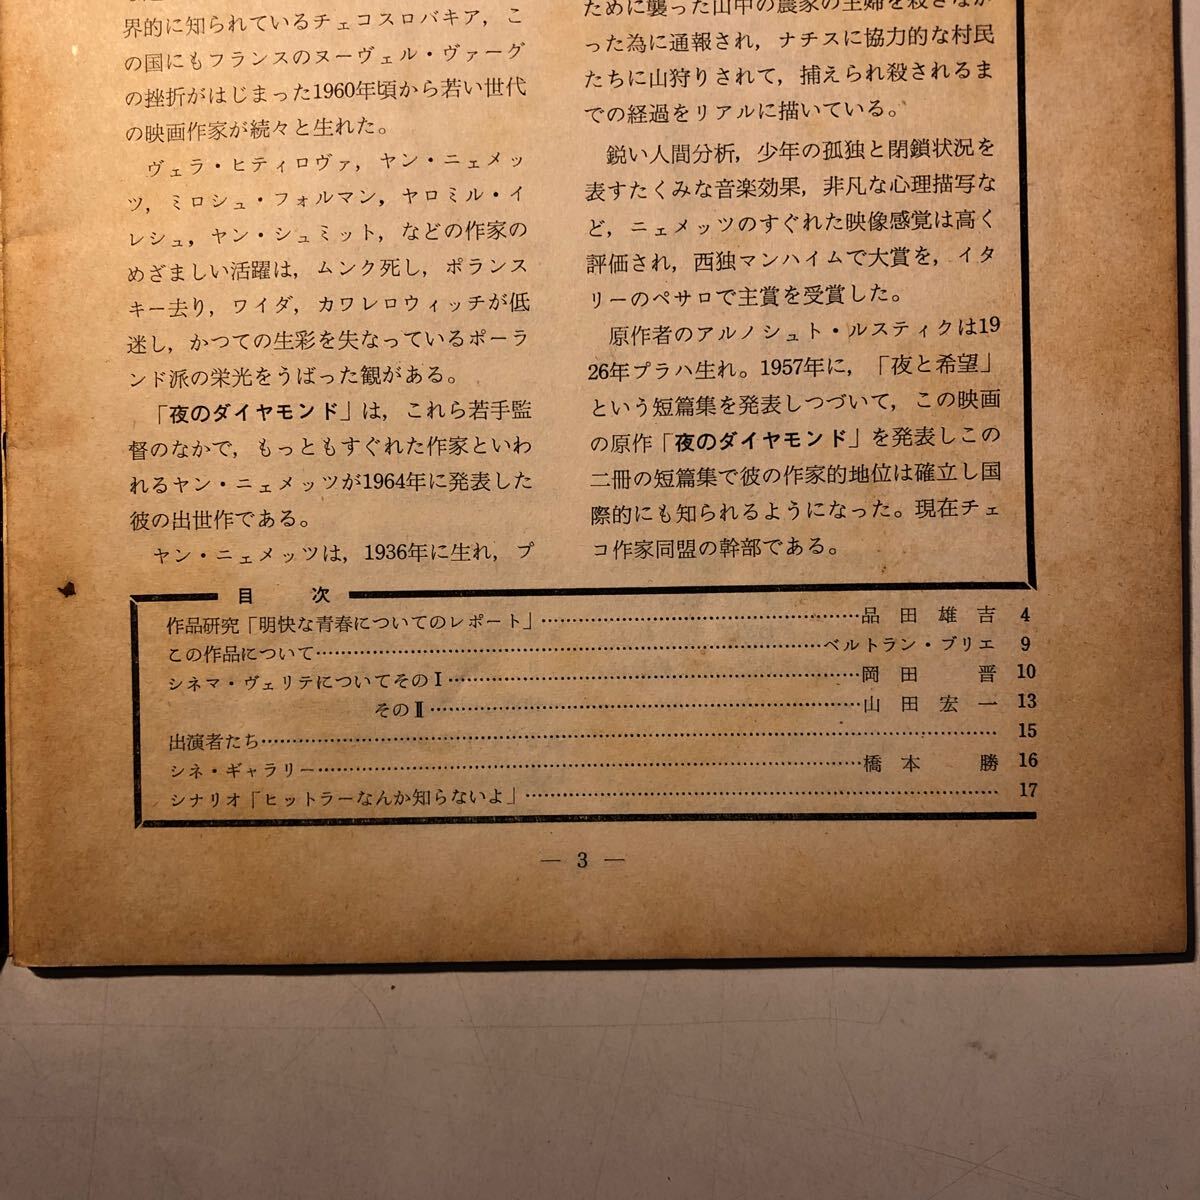 界的に知られているチェコスロバキア，こ
の国にもフランスのヌーヴェル・ヴァーグ
の挫折がはじまった1960年頃から若い世代
の映画作家が続々と生れた。
ヴェラ・ヒティロヴァ，ヤン・ニェメッ
ツ，ミロシュ・フォルマン，ヤロミル・イ
レシュ，ヤン・シュミット，などの作家の
めざましい活躍は，ムンク死し，ポランス
キー去り，ワイダ，カワレロウィッチが低
迷し，かつての生彩を失なっているポーラ
ンド派の栄光をうばった観がある。
「夜のダイヤモンド」は，これら若手監
督のなかで，もっともすぐれた作家といわ
れるヤン・ニェメッツが1964年に発表した
彼の出世作である。
ヤン・ニェメッツは，1936年に生れ，プ
ために襲った山中の農家の主婦を殺さなか
った為に通報され，ナチスに協力的な村民
たちに山狩りされて，捕えられ殺されるま
での経過をリアルに描いている。
鋭い人間分析，少年の孤独と閉鎖状況を
表すたくみな音楽効果，非凡な心理描写な
ど，ニェメッツのすぐれた映像感覚は高く
評価され，西独マンハイムで大賞を，イタ
リーのペサロで主賞を受賞した。
原作者のアルノシュト・ルスティクは19
26年プラハ生れ。1957年に，「夜と希望」
という短篇集を発表しつづいて，この映画
の原作「夜のダイヤモンド」を発表しこの
二冊の短篇集で彼の作家的地位は確立し国
際的にも知られるようになった。現在チェ
コ作家同盟の幹部である。
目　次
作品研究「明快な青春についてのレポート」…………品田雄吉 4
この作品について…………ベルトラン・ブリエ 9
シネマ・ヴェリテについてそのⅠ…………岡田　晋 10
そのⅡ…………山田宏一 13
出演者たち………… 15
シネ・ギャラリー…………橋本　勝 16
シナリオ「ヒットラーなんか知らないよ」………… 17
— 3 —